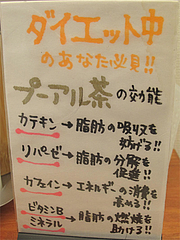 ダイエット中
のあなた必見!!
プーアル茶の効能
カテキン→脂肪の吸収を
妨げる!!
リパーゼ→脂肪の分解を
促進!!
カフェイン→エネルギーの消費を
高める!!
ビタミンB
ミネラル→脂肪の燃焼を
助ける!!